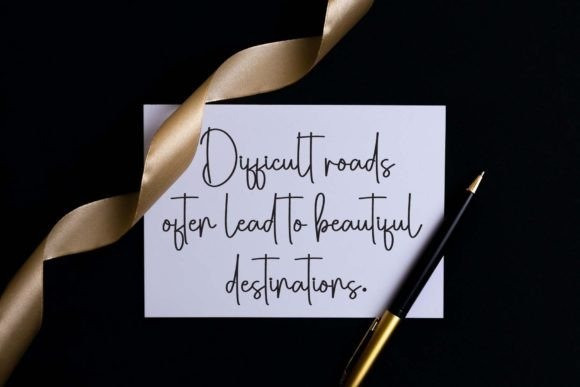 Difficult roads
often lead to beautiful
destinations.